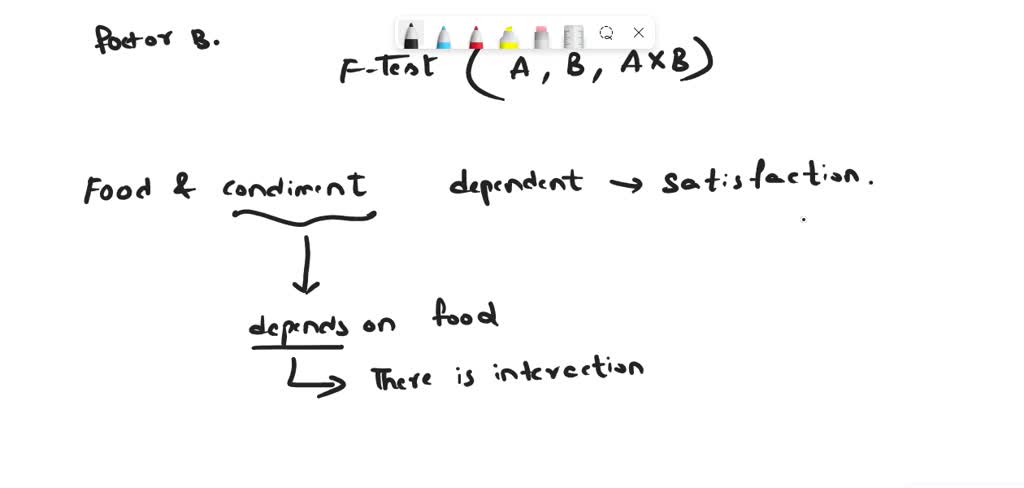 factor B.
F-Test (A, B, A×B)
Food & condiment dependent → satisfaction.
depends on food
There is interection